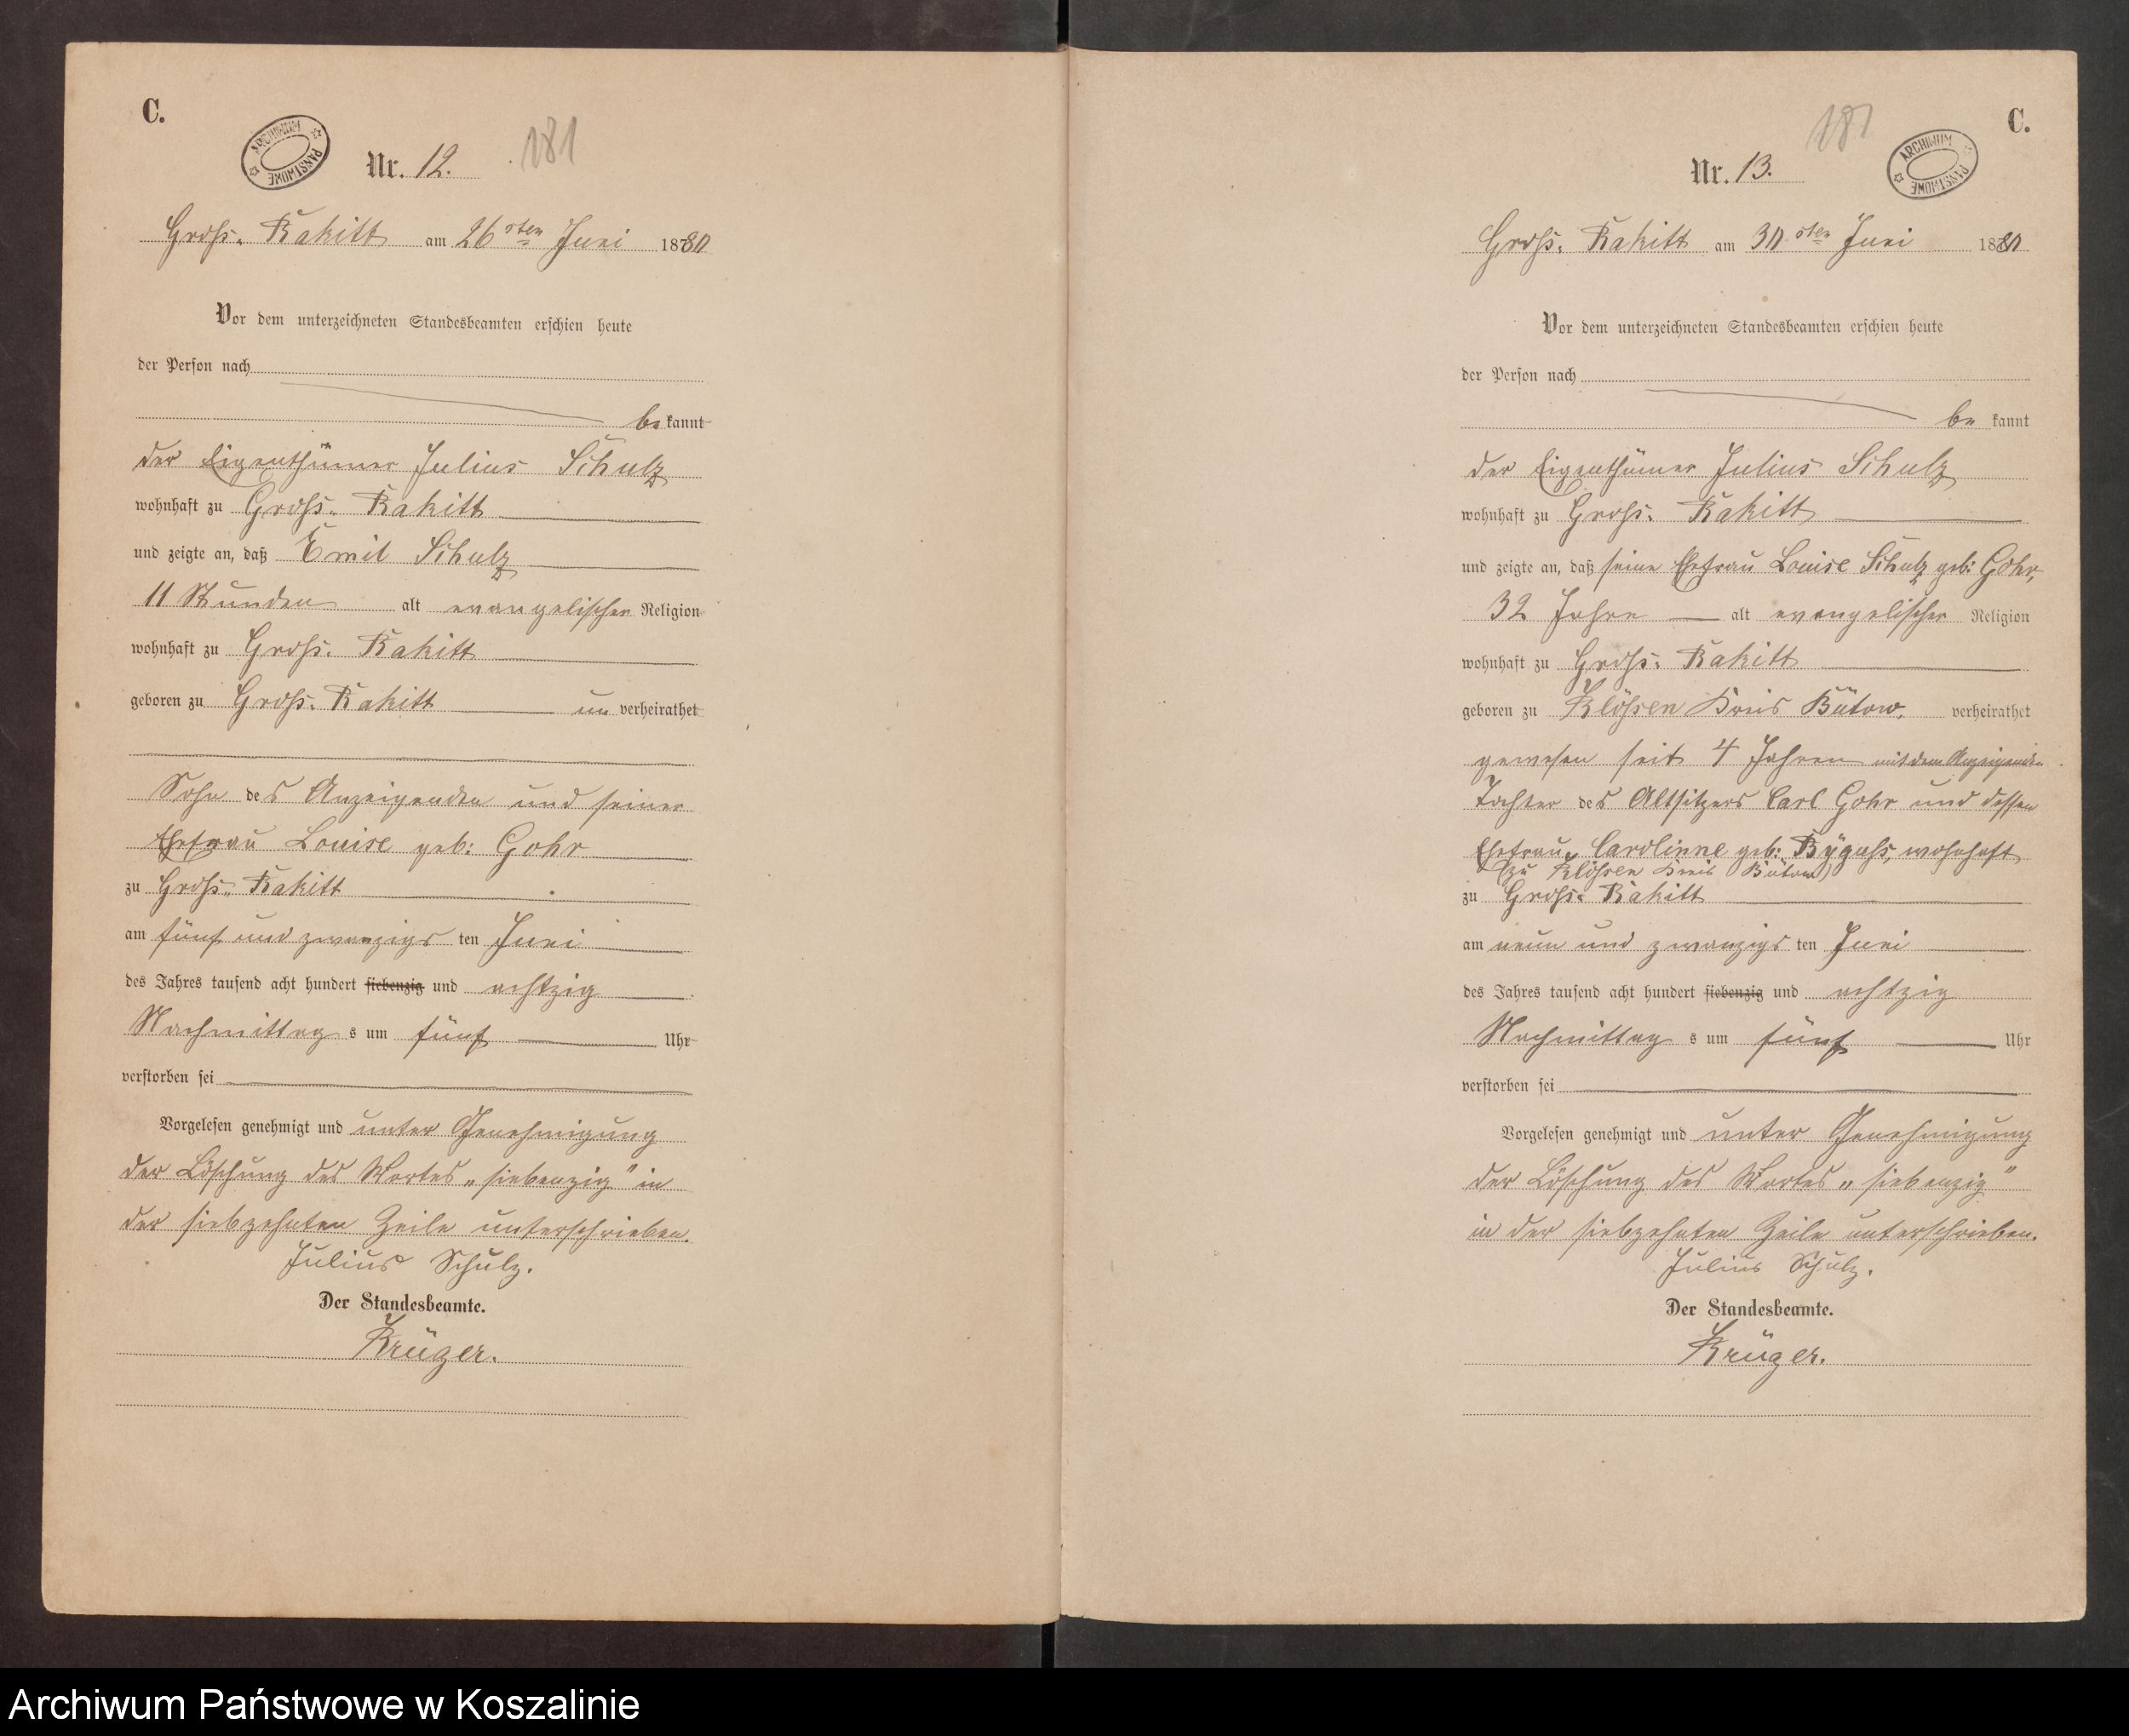 C.
ARCHIWUM PAŃSTWOWE
Nr. 12.
181
Gross-Rakitt am 26sten Juni 1880
Vor dem unterzeichneten Standesbeamten erschien heute
der Person nach
bekannt
der Eigenthümer Julius Schulz
wohnhaft zu Gross-Rakitt
und zeigte an, daß Emil Schulz
11 Stunden alt evangelischer Religion
wohnhaft zu Gross-Rakitt
geboren zu Gross-Rakitt unverheirathet
Sohn des Anzeigenden und seiner
Ehefrau Louise geb: Gohr
zu Gross-Rakitt
am fünf und zwanzigsten Juni
des Jahres tausend acht hundert siebenzig und achtzig
Nachmittags um fünf Uhr
verstorben sei
Vorgelesen genehmigt und unter Genehmigung
der Löschung des Wortes „siebenzig" in
der siebzehnten Zeile unterschrieben.
Julius Schulz.
Der Standesbeamte.
Krüger.
C.
ARCHIWUM PAŃSTWOWE
Nr. 13.
Gross-Rakitt am 30sten Juni 1880
Vor dem unterzeichneten Standesbeamten erschien heute
der Person nach
be kannt
der Eigenthümer Julius Schulz
wohnhaft zu Gross-Rakitt
und zeigte an, daß seine Ehefrau Louise Schulz geb: Gohr,
32 Jahre alt evangelischer Religion
wohnhaft zu Gross-Rakitt
geboren zu Klössen Kreis Bütow, verheirathet
gewesen seit 4 Jahren mit dem Anzeigenden
Tochter des Altsitzers Carl Gohr und dessen
Ehefrau Carolinne geb: wohnhaft
(zu Klössen Kreis Bütow)
zu Gross-Rakitt
am neun und zwanzigsten Juni
des Jahres tausend acht hundert siebenzig und achtzig
Nachmittags um fünf Uhr
verstorben sei
Vorgelesen genehmigt und unter Genehmigung
der Löschung des Wortes „siebenzig"
in der siebzehnten Zeile unterschrieben.
Julius Schulz.
Der Standesbeamte.
Krüger.
Archiwum Państwowe w Koszalinie